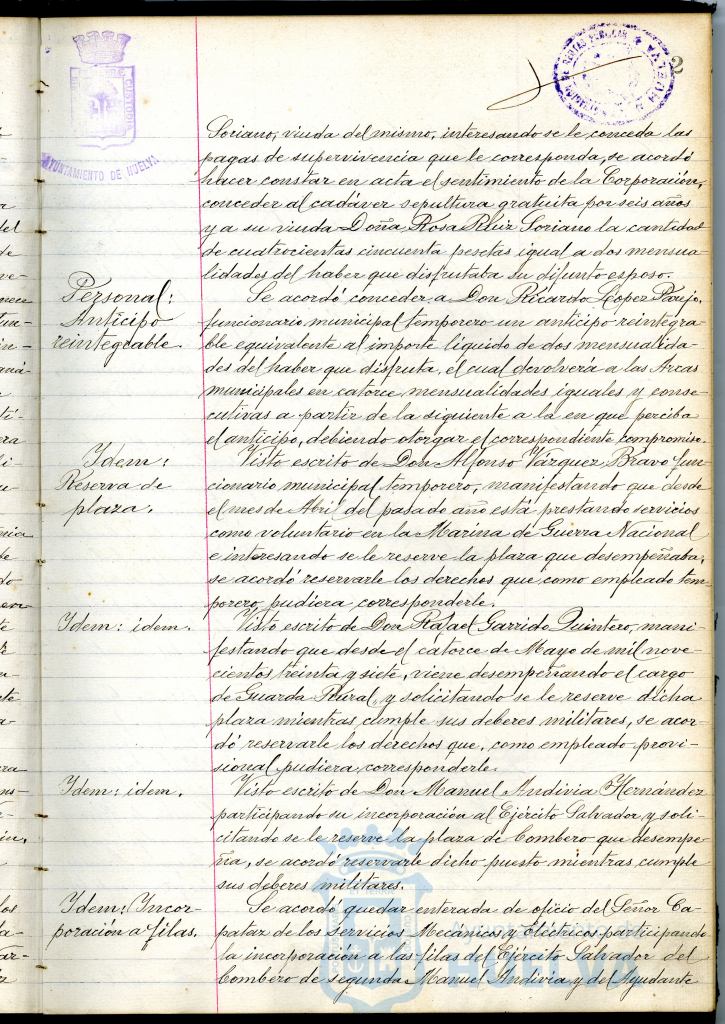 2
AYUNTAMIENTO DE HUELVA
Soriano, viuda del mismo, interesando se le conceda las
pagas de supervivencia que le corresponda, se acordó
hacer constar en acta el sentimiento de la Corporación,
conceder al cadáver sepultura gratuita por seis años
y a su viuda Doña Rosa Ruiz Soriano la cantidad
de cuatrocientas cincuenta pesetas igual a dos mensua-
lidades del haber que disfrutaba su difunto esposo.
Personal:
Anticipo
reintegrable
Se acordó conceder a Don Ricardo López Parejo,
funcionario municipal temporero un anticipo reintegra-
ble equivalente al importe líquido de dos mensualida-
des del haber que disfruta, el cual devolverá a las Arcas
municipales en catorce mensualidades iguales y conse-
cutivas a partir de la siguiente a la en que perciba
el anticipo, debiendo otorgar el correspondiente compromiso.
Idem:
Reserva de
plaza.
Visto escrito de Don Alfonso Vázquez Bravo fun-
cionario municipal temporero, manifestando que desde
el mes de Abril del pasado año está prestando servicios
como voluntario en la Marina de Guerra Nacional
e interesando se le reserve la plaza que desempeñaba,
se acordó reservarle los derechos que como empleado tem-
porero, pudiera corresponderle.
Idem: idem.
Visto escrito de Don Rafael Garrido Quintero, mani-
festando que desde el catorce de Mayo de mil nove-
cientos treinta y siete, viene desempeñando el cargo
de Guarda Rural, y solicitando se le reserve dicha
plaza mientras cumple sus deberes militares, se acor-
dó reservarle los derechos que, como empleado provi-
sional pudiera corresponderle.
Idem: idem.
Visto escrito de Don Manuel Andivia Hernández
participando su incorporación al Ejército Salvador y soli-
citando se le reserve la plaza de Bombero que desempe-
ña, se acordó reservarle dicho puesto mientras cumple
sus deberes militares.
Idem: Incor-
poración a filas.
Se acordó quedar enterada de oficio del Señor Ca-
pataz de los servicios Mecánicos y Eléctricos participando
la incorporación a las filas del Ejército Salvador del
bombero de segunda Manuel Andivia y del Ayudante